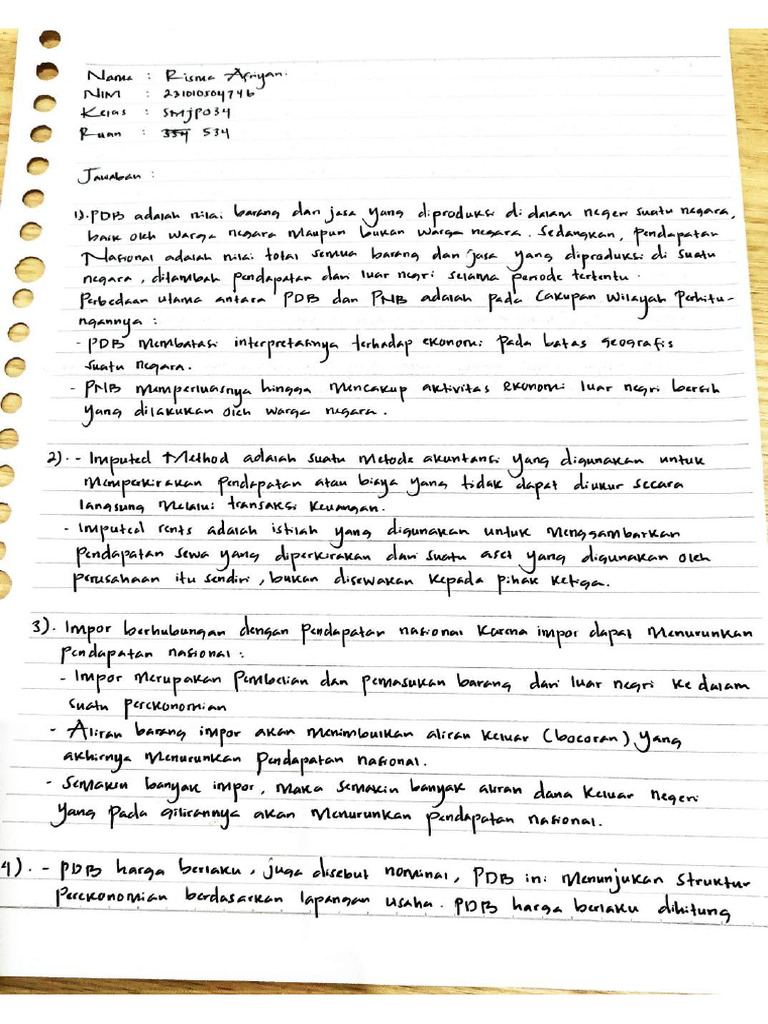 Nama : Risma Afriyan.
NIM : 221010504746
Kelas : SMJP034
Ruan : 334 534
Jawaban :
1). PDB adalah nilai barang dan jasa yang diproduksi di dalam negeri suatu negara,
baik oleh warga negara maupun bukan warga negara. Sedangkan, pendapatan
Nasional adalah nilai total semua barang dan jasa yang diproduksi di suatu
negara, ditambah pendapatan dari luar negri selama periode tertentu.
Perbedaan utama antara PDB dan PNB adalah pada cakupan wilayah perhitu-
ngannya :
- PDB membatasi interpretasinya terhadap ekonomi pada batas geografis
suatu negara.
- PNB memperluasnya hingga mencakup aktivitas ekonomi luar negri bersih
yang dilakukan oleh warga negara.
2). - Imputed Method adalah suatu metode akuntansi yang digunakan untuk
memperkirakan pendapatan atau biaya yang tidak dapat diukur secara
langsung melalui transaksi keuangan.
- Imputed rents adalah istilah yang digunakan untuk menggambarkan
pendapatan sewa yang diperkirakan dari suatu aset yang digunakan oleh
perusahaan itu sendiri, bukan disewakan kepada pihak ketiga.
3). Impor berhubungan dengan pendapatan nasional karena impor dapat menurunkan
pendapatan nasional :
- Impor merupakan pembelian dan pemasukan barang dari luar negri ke dalam
suatu perekonomian
- Aliran barang impor akan menimbulkan aliran keluar (bocoran) yang
akhirnya menurunkan pendapatan nasional.
- Semakin banyak impor, maka semakin banyak aliran dana keluar negeri
yang pada gilirannya akan menurunkan pendapatan nasional.
4). - PDB harga berlaku, juga disebut nominal, PDB ini menunjukan struktur
perekonomian berdasarkan lapangan usaha. PDB harga berlaku dihitung